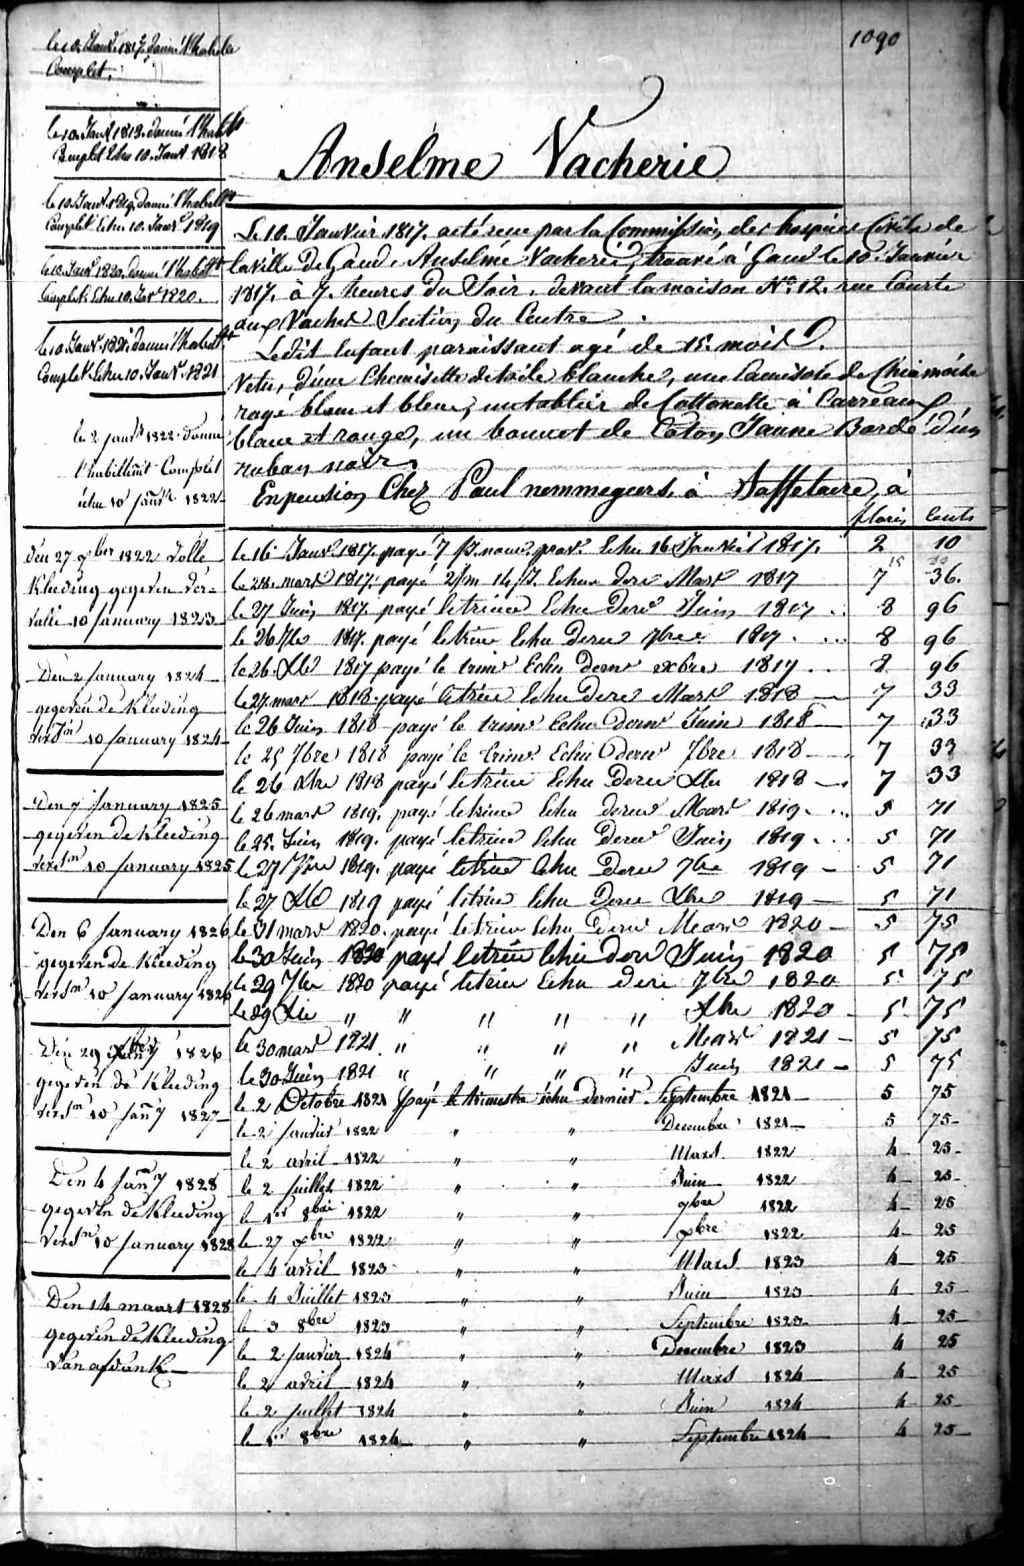 1090
le 10 Janv. 1817. donné l'habil
Complet.
le 10. Janv. 1818. donné l'habilt
Complet Echu 10. Janv. 1818
le 10. Janv. 1819. donné l'habillt
Complet Echu 10. Janv. 1819
le 10. Janv. 1820. donné l'habillt
Complet Echu 10. Janv. 1820.
le 10. Janv. 1821. donné l'habillt
Complet Echu 10. Janv. 1821
le 2 janvr 1822 donné
l'habillemt Complet
échu 10 janvr 1822
Den 27 xber 1822 volle
Kleeding gegeven ver-
vallé 10 january 1823
Den 2 January 1824
gegeven de Kleeding
versn 10 january 1824
Den 7 January 1825
gegeven de Kleeding
versn 10 january 1825
Den 6 January 1826
gegeven de Kleeding
versn 10 january 1826
Den 29 1826
gegeven de Kleeding
versn 10 janry 1827
Den 4 janry 1828
gegeven de Kleeding
versn 10 january 1828
Den 14 maart 1828
gegeven de Kleeding
van afdank
Anselme Vacherie
Le 10. Janvier 1817. acté reçu par la Commission des hospices Civils de
la ville de Gand. Anselme Vacherie, trouvé à Gand le 10. Janvier
1817. à 7. heures du Soir. devant la maison No. 12. rue Courte
aux Vaches Section du Centre.
Ledit Enfant paraissant agé de 15. mois.
Vetu, d'une Chemisette de toile blanche, une Camisole de Siamoise
rayé blanc et bleue, un tablier de Cottonette à Carreaux
blanc et rouge, un bonnet de Coton Jaune Bordé d'un
ruban noir.
En pension Chez Paul nemmegeers. à Saffelaere, à
florin Cents
le 16 Janv. 1817. payé 7 Echu 16 Janvier 1817. 2 10
le 28. mars 1817. payé Echu derr Mars 1817 7 36.
le 27 Juin 1817. payé le trim Echu derr Juin 1817 .. 8 96
le 26 7bre 1817. payé le trim Echu derr 7bre 1817. ... 8 96
le 26 Xbre 1817 payé le trime Echu derr xbre 1817 .. 8 96
le 27 mars 1818. payé le trim Echu derr Mars 1818 — 7 33
le 26 Juin 1818 payé le trime Echu derr Juin 1818 — 7 33
le 25 7bre 1818 payé le trime. Echu derr 7bre 1818 — 7 33
le 26 Xbre 1818 payé le trim Echu derr Xbre 1818 — 7 33
le 26 mars 1819. payé le trim Echu derr Mars 1819. ... 5 71
le 25. Juin 1819. payé le trim Echu derr Juin 1819. .. 5 71
le 27 7bre 1819. payé le trim Echu derr 7bre 1819 — 5 71
le 27 Xbre 1819 payé le trim Echu derr Xbre 1819 — 5 71
le 31 mars 1820. payé le trim Echu derr Mars 1820 — 5 75
le 30 Juin 1820 payé le trim Echu derr Juin 1820 5 75
le 29 7bre 1820 payé le trim Echu derr 7bre 1820 5 75
le 29 Xbre " " " " " Xbre 1820 — 5 75
le 30 mars 1821 " " " " Mars 1821 — 5 75
le 30 Juin 1821 " " " " Juin 1821 — 5 75
le 2 Octobre 1821 Payé le trimestre échu dernier Septembre 1821 — 5 75
le 2 janvier 1822 " " Decembre 1821 — 5 75
le 2 avril 1822 " " Mars 1822 4 25
le 2 juillet 1822 " " Juin 1822 4 25
le 1er 8bre 1822 " " 7bre 1822 4 25
le 27 xbre 1822 " " xbre 1822 4 25
le 4 avril 1823 " " Mars 1823 4 25
le 4 Juillet 1823 " " Juin 1823 4 25
le 3 8bre 1823 " " Septembre 1823 4 25
le 2 janvier 1824 " " Decembre 1823 4 25
le 2 avril 1824 " " Mars 1824 4 25
le 2 juillet 1824 " " Juin 1824 4 25
le 1er 8bre 1824 " " Septembre 1824 4 25